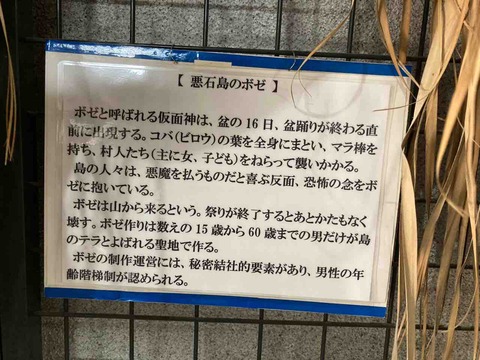 【 悪石島のボゼ 】
ボゼと呼ばれる仮面神は、盆の16日、盆踊りが終わる直
前に出現する。コバ(ビロウ)の葉を全身にまとい、マラ棒を
持ち、村人たち(主に女、子ども)をねらって襲いかかる。
島の人々は、悪魔を払うものだと喜ぶ反面、恐怖の念をボ
ゼに抱いている。
ボゼは山から来るという。祭りが終了するとあとかたもなく
壊す。ボゼ作りは数えの15歳から60歳までの男だけが島
のテラとよばれる聖地で作る。
ボゼの制作運営には、秘密結社的要素があり、男性の年
齢階梯制が認められる。